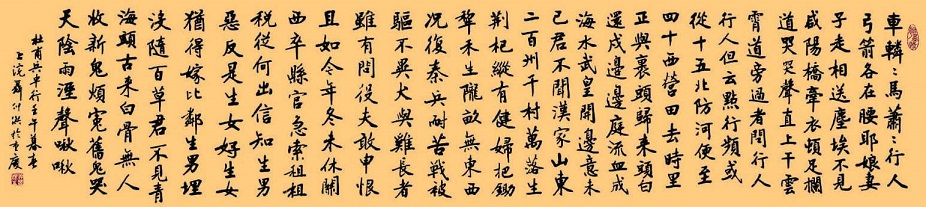 車轔〻馬蕭〻行人
弓箭各在腰耶娘妻
子走相送塵埃不見
咸陽橋牽衣頓足攔
道哭哭聲直上干雲
霄道旁過者問行人
行人但云點行頻或
從十五北防河便至
四十西營田去時里
正與裹頭歸來頭白
還戍邊邊庭流血成
海水武皇開邊意未
已君不聞漢家山東
二百州千村萬落生
荆杞縱有健婦把鋤
犂禾生隴畝無東西
況復秦兵耐苦戰被
驅不異犬與雞長者
雖有問役夫敢申恨
且如今年冬未休關
西卒縣官急索租租
税從何出信知生男
惡反是生女好生女
猶得嫁比鄰生男埋
没隨百草君不見青
海頭古來白骨無人
收新鬼煩寃舊鬼哭
天陰雨溼聲啾啾
杜甫兵車行壬午暮春
上浣聶仲於重慶